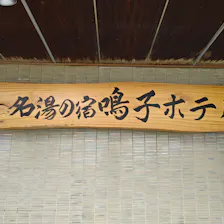 名湯の宿鳴子ホテ